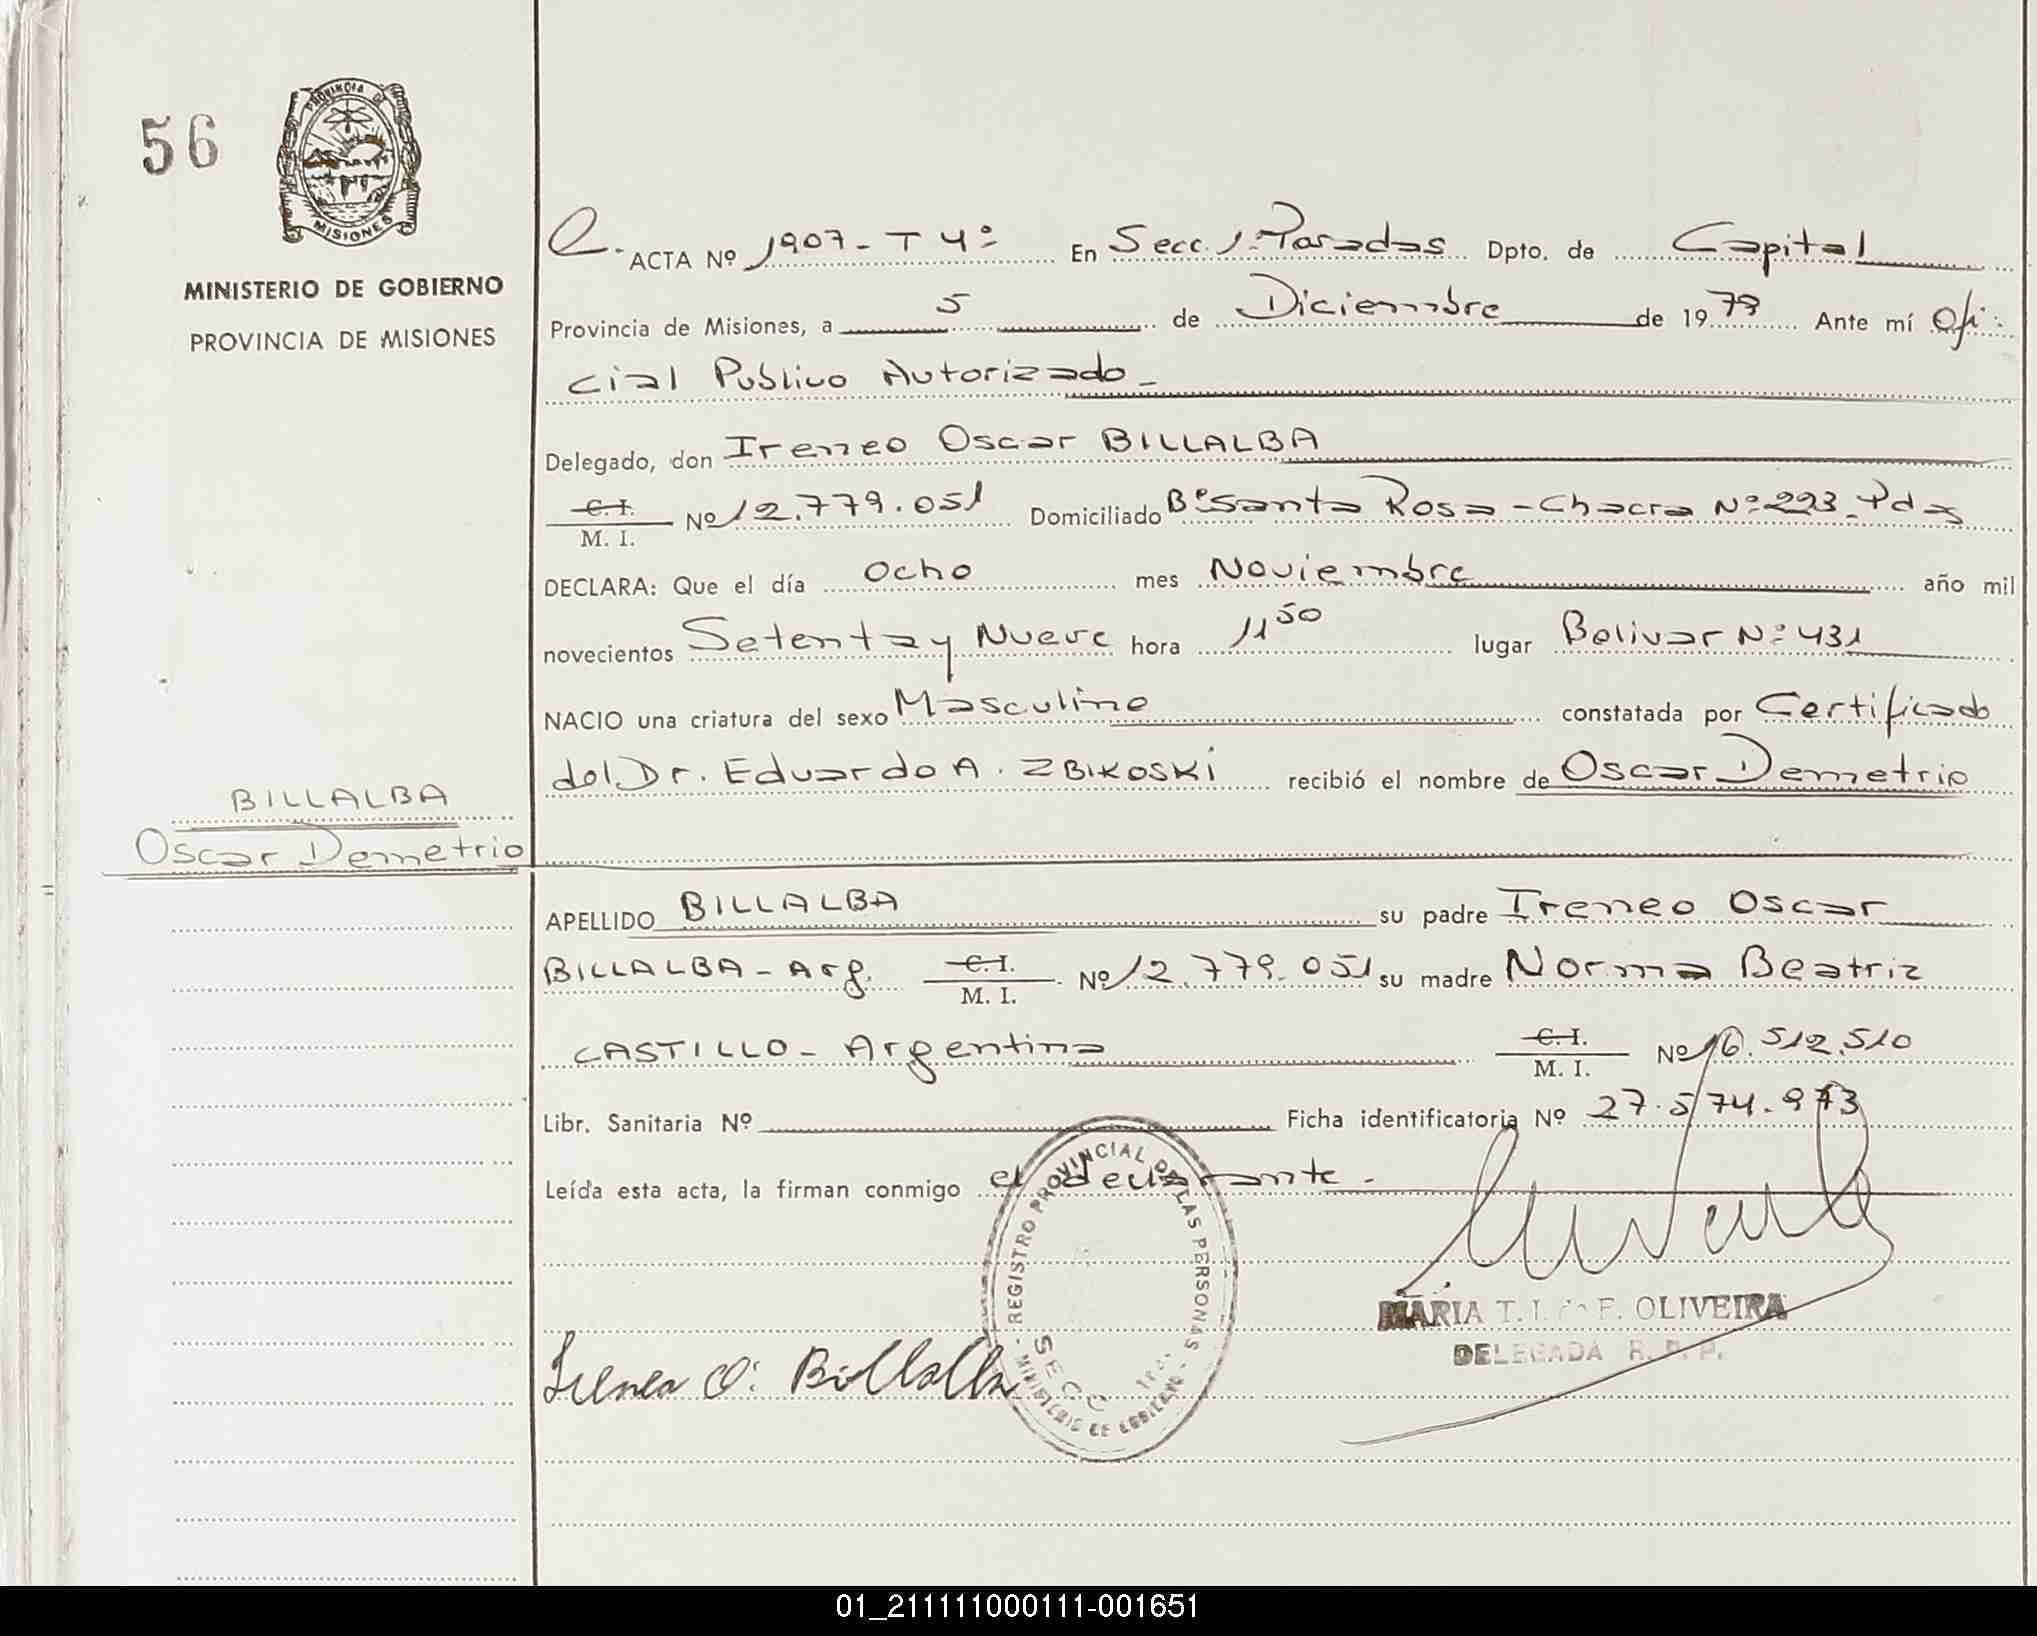 56
PROVINCIA DE
MISIONES
MINISTERIO DE GOBIERNO
PROVINCIA DE MISIONES
BILLALBA
Oscar Demetrio
ACTA Nº 1907 - T 4º En Secc. 1º Posadas Dpto. de Capital
Provincia de Misiones, a 5 de Diciembre de 1979 Ante mí Ofi-
cial Publico Autorizado-
Delegado, don Ireneo Oscar BILLALBA
C. I.
M. I. Nº 12.779.051 Domiciliado Bº Santa Rosa - Chacra Nº 223. Pdas
DECLARA: Que el día Ocho mes Noviembre año mil
novecientos Setenta y Nueve hora 11 50 lugar Bolivar Nº 431
NACIO una criatura del sexo Masculino constatada por Certificado
del Dr. Eduardo A. ZBIKOSKI recibió el nombre de Oscar Demetrio
APELLIDO BILLALBA su padre Ireneo Oscar
BILLALBA - Arg. C. I.
M. I. Nº 12.779.051 su madre Norma Beatriz
CASTILLO - Argentina C. I.
M. I. Nº 16.512.510
Libr. Sanitaria Nº Ficha identificatoria Nº 27.574.973
Leída esta acta, la firman conmigo el declarante.
REGISTRO PROVINCIAL DE LAS PERSONAS
SECC
MINISTERIO DE GOBIERNO
MARIA T. I. de F. OLIVEIRA
DELEGADA R. P. P.
Ireneo O. Billalba
01_211111000111-001651